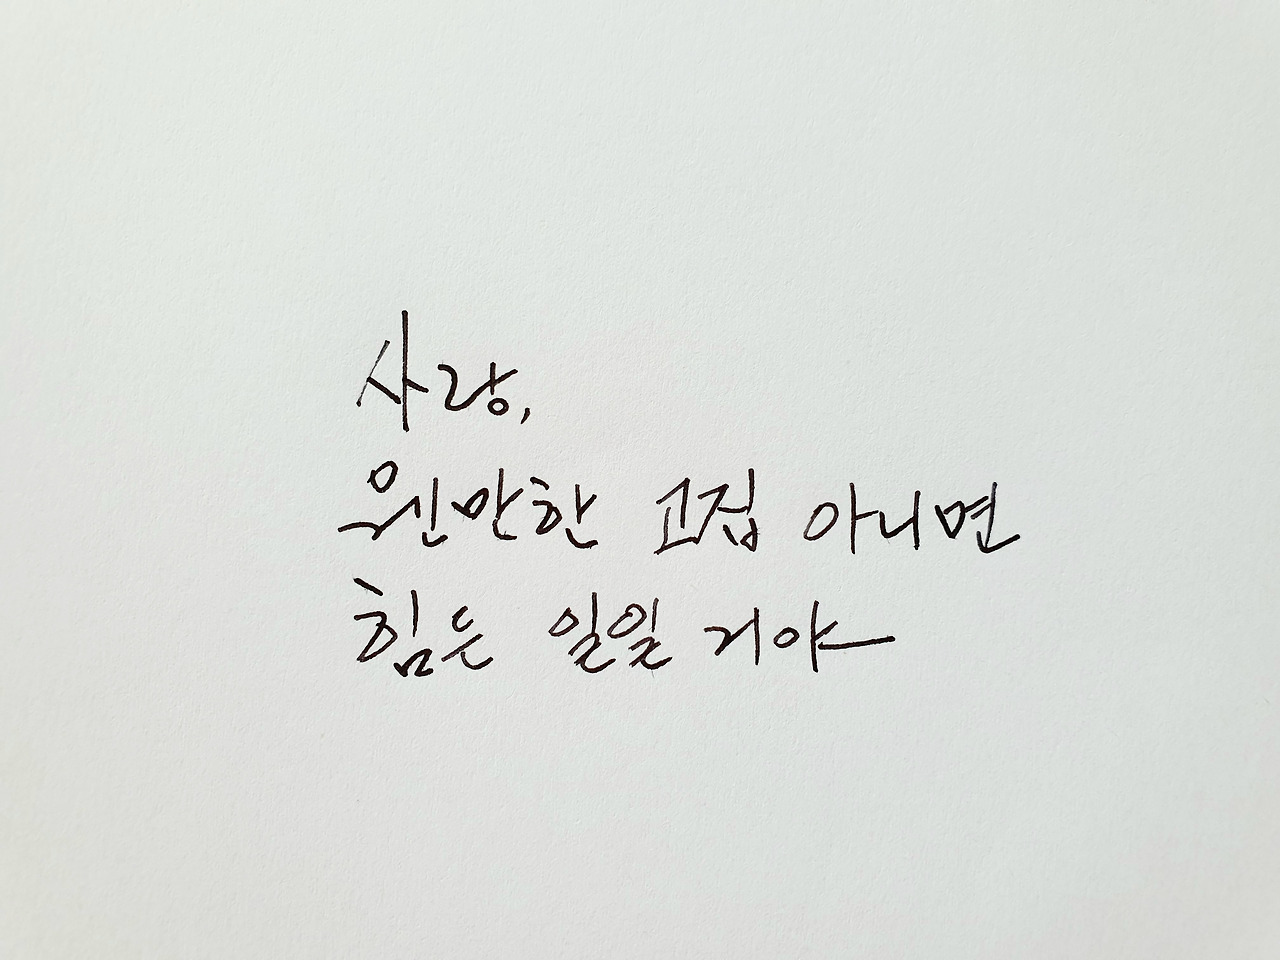 사랑,
웬만한 고집 아니면
힘든 일일 거야